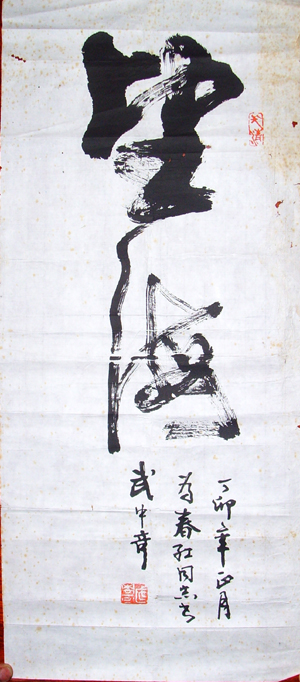 望海
丁卯年正月
为春红同志书
武中奇